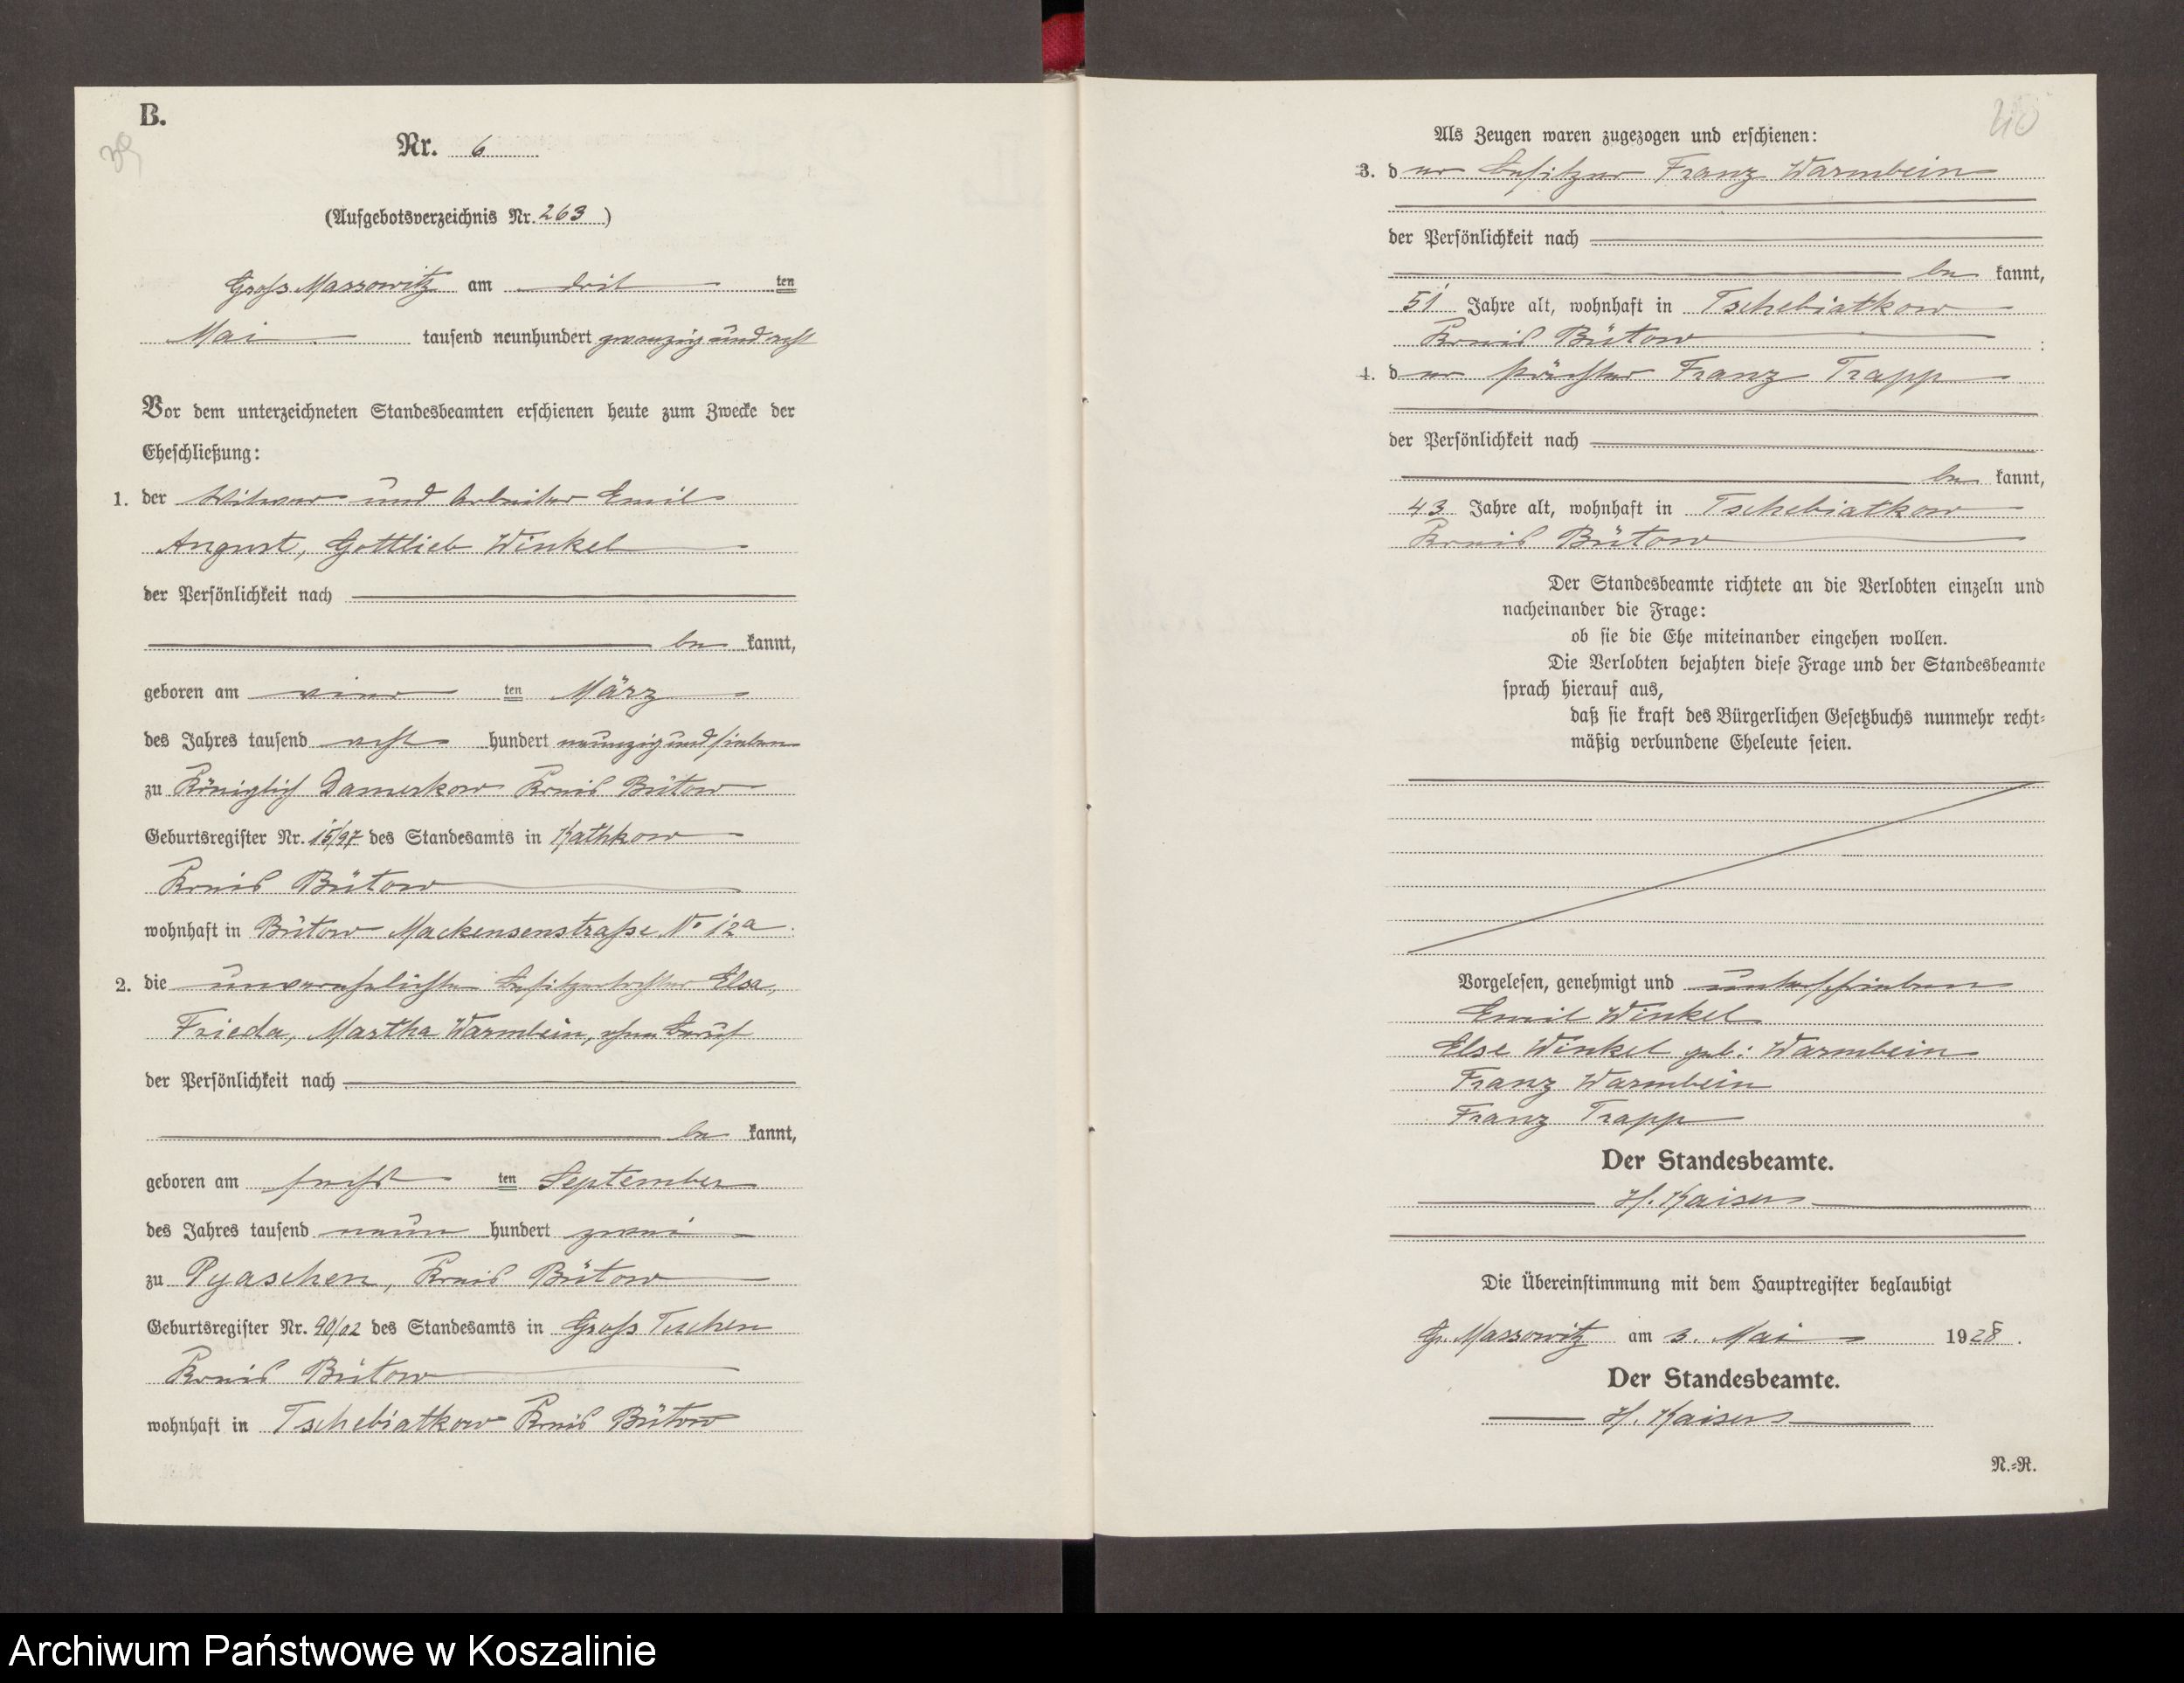 B.
39
Nr. 6
(Aufgebotsverzeichnis Nr. 263)
Gross Massowitz am drit ten
Mai tausend neunhundert zwanzig und acht
Vor dem unterzeichneten Standesbeamten erschienen heute zum Zwecke der
Eheschließung:
1. der Witwer und Arbeiter Emil
August, Gottlieb Winkel
der Persönlichkeit nach
be kannt,
geboren am vier ten März
des Jahres tausend acht hundert neunzig und sieben
zu Königlich Damerkow Kreis Bütow
Geburtsregister Nr. 15/97 des Standesamts in Kathkow
Kreis Bütow
wohnhaft in Bütow Mackensenstraße No 12a.
2. die unverehelichte Besitzertochter Else,
Frieda, Martha Warmbein, ohne Beruf
der Persönlichkeit nach
be kannt,
geboren am sechs ten September
des Jahres tausend neun hundert zwei
zu Pyaschen, Kreis Bütow
Geburtsregister Nr. 90/02 des Standesamts in Gross Tuchen
Kreis Bütow
wohnhaft in Tschebiatkow Kreis Bütow
40
Als Zeugen waren zugezogen und erschienen:
3. d er Besitzer Franz Warmbein
der Persönlichkeit nach
be kannt,
51 Jahre alt, wohnhaft in Tschebiatkow
Kreis Bütow ;
4. d er Pächter Franz Trapp
der Persönlichkeit nach
be kannt,
43 Jahre alt, wohnhaft in Tschebiatkow
Kreis Bütow
Der Standesbeamte richtete an die Verlobten einzeln und
nacheinander die Frage:
ob sie die Ehe miteinander eingehen wollen.
Die Verlobten bejahten diese Frage und der Standesbeamte
sprach hierauf aus,
daß sie kraft des Bürgerlichen Gesetzbuchs nunmehr recht-
mäßig verbundene Eheleute seien.
Vorgelesen, genehmigt und unterschrieben
Emil Winkel
Else Winkel geb: Warmbein
Franz Warmbein
Franz Trapp
Der Standesbeamte.
H. Kaiser
Die Übereinstimmung mit dem Hauptregister beglaubigt
Gr. Massowitz am 3. Mai 1928.
Der Standesbeamte.
H. Kaiser
N.-R.
Archiwum Państwowe w Koszalinie